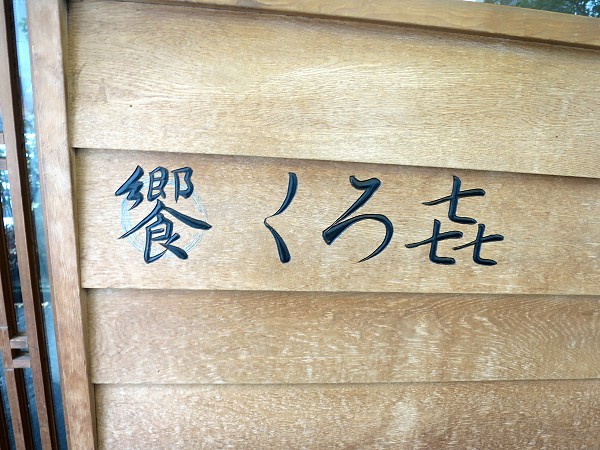 饗 くろ㐂